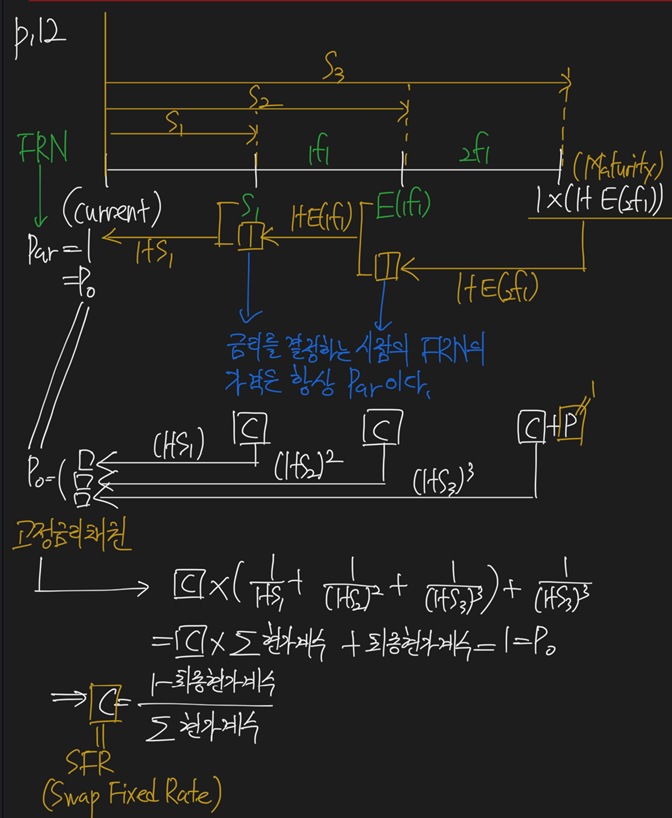 p.12
S₃
S₂
S₁
FRN
₁f₁
₂f₁
(Maturity)
(current)
S₁
E(₁f₁)
1×(1+E(₂f₁))
Par=1
1+S₁
1
1+E(₁f₁)
=P₀
1
1+E(₂f₁)
금리를 결정하는 시점의 FRN의
가격은 항상 Par이다.
1
C
C
C+P
(1+S₁)
(1+S₂)²
(1+S₃)³
P₀=(
고정금리채권
C×(1/1+S₁ + 1/(1+S₂)² + 1/(1+S₃)³) + 1/(1+S₃)³
=C×∑현가계수 + 최종현가계수=1=P₀
⇒ C= 1-최종현가계수/∑현가계수
SFR
(Swap Fixed Rate)